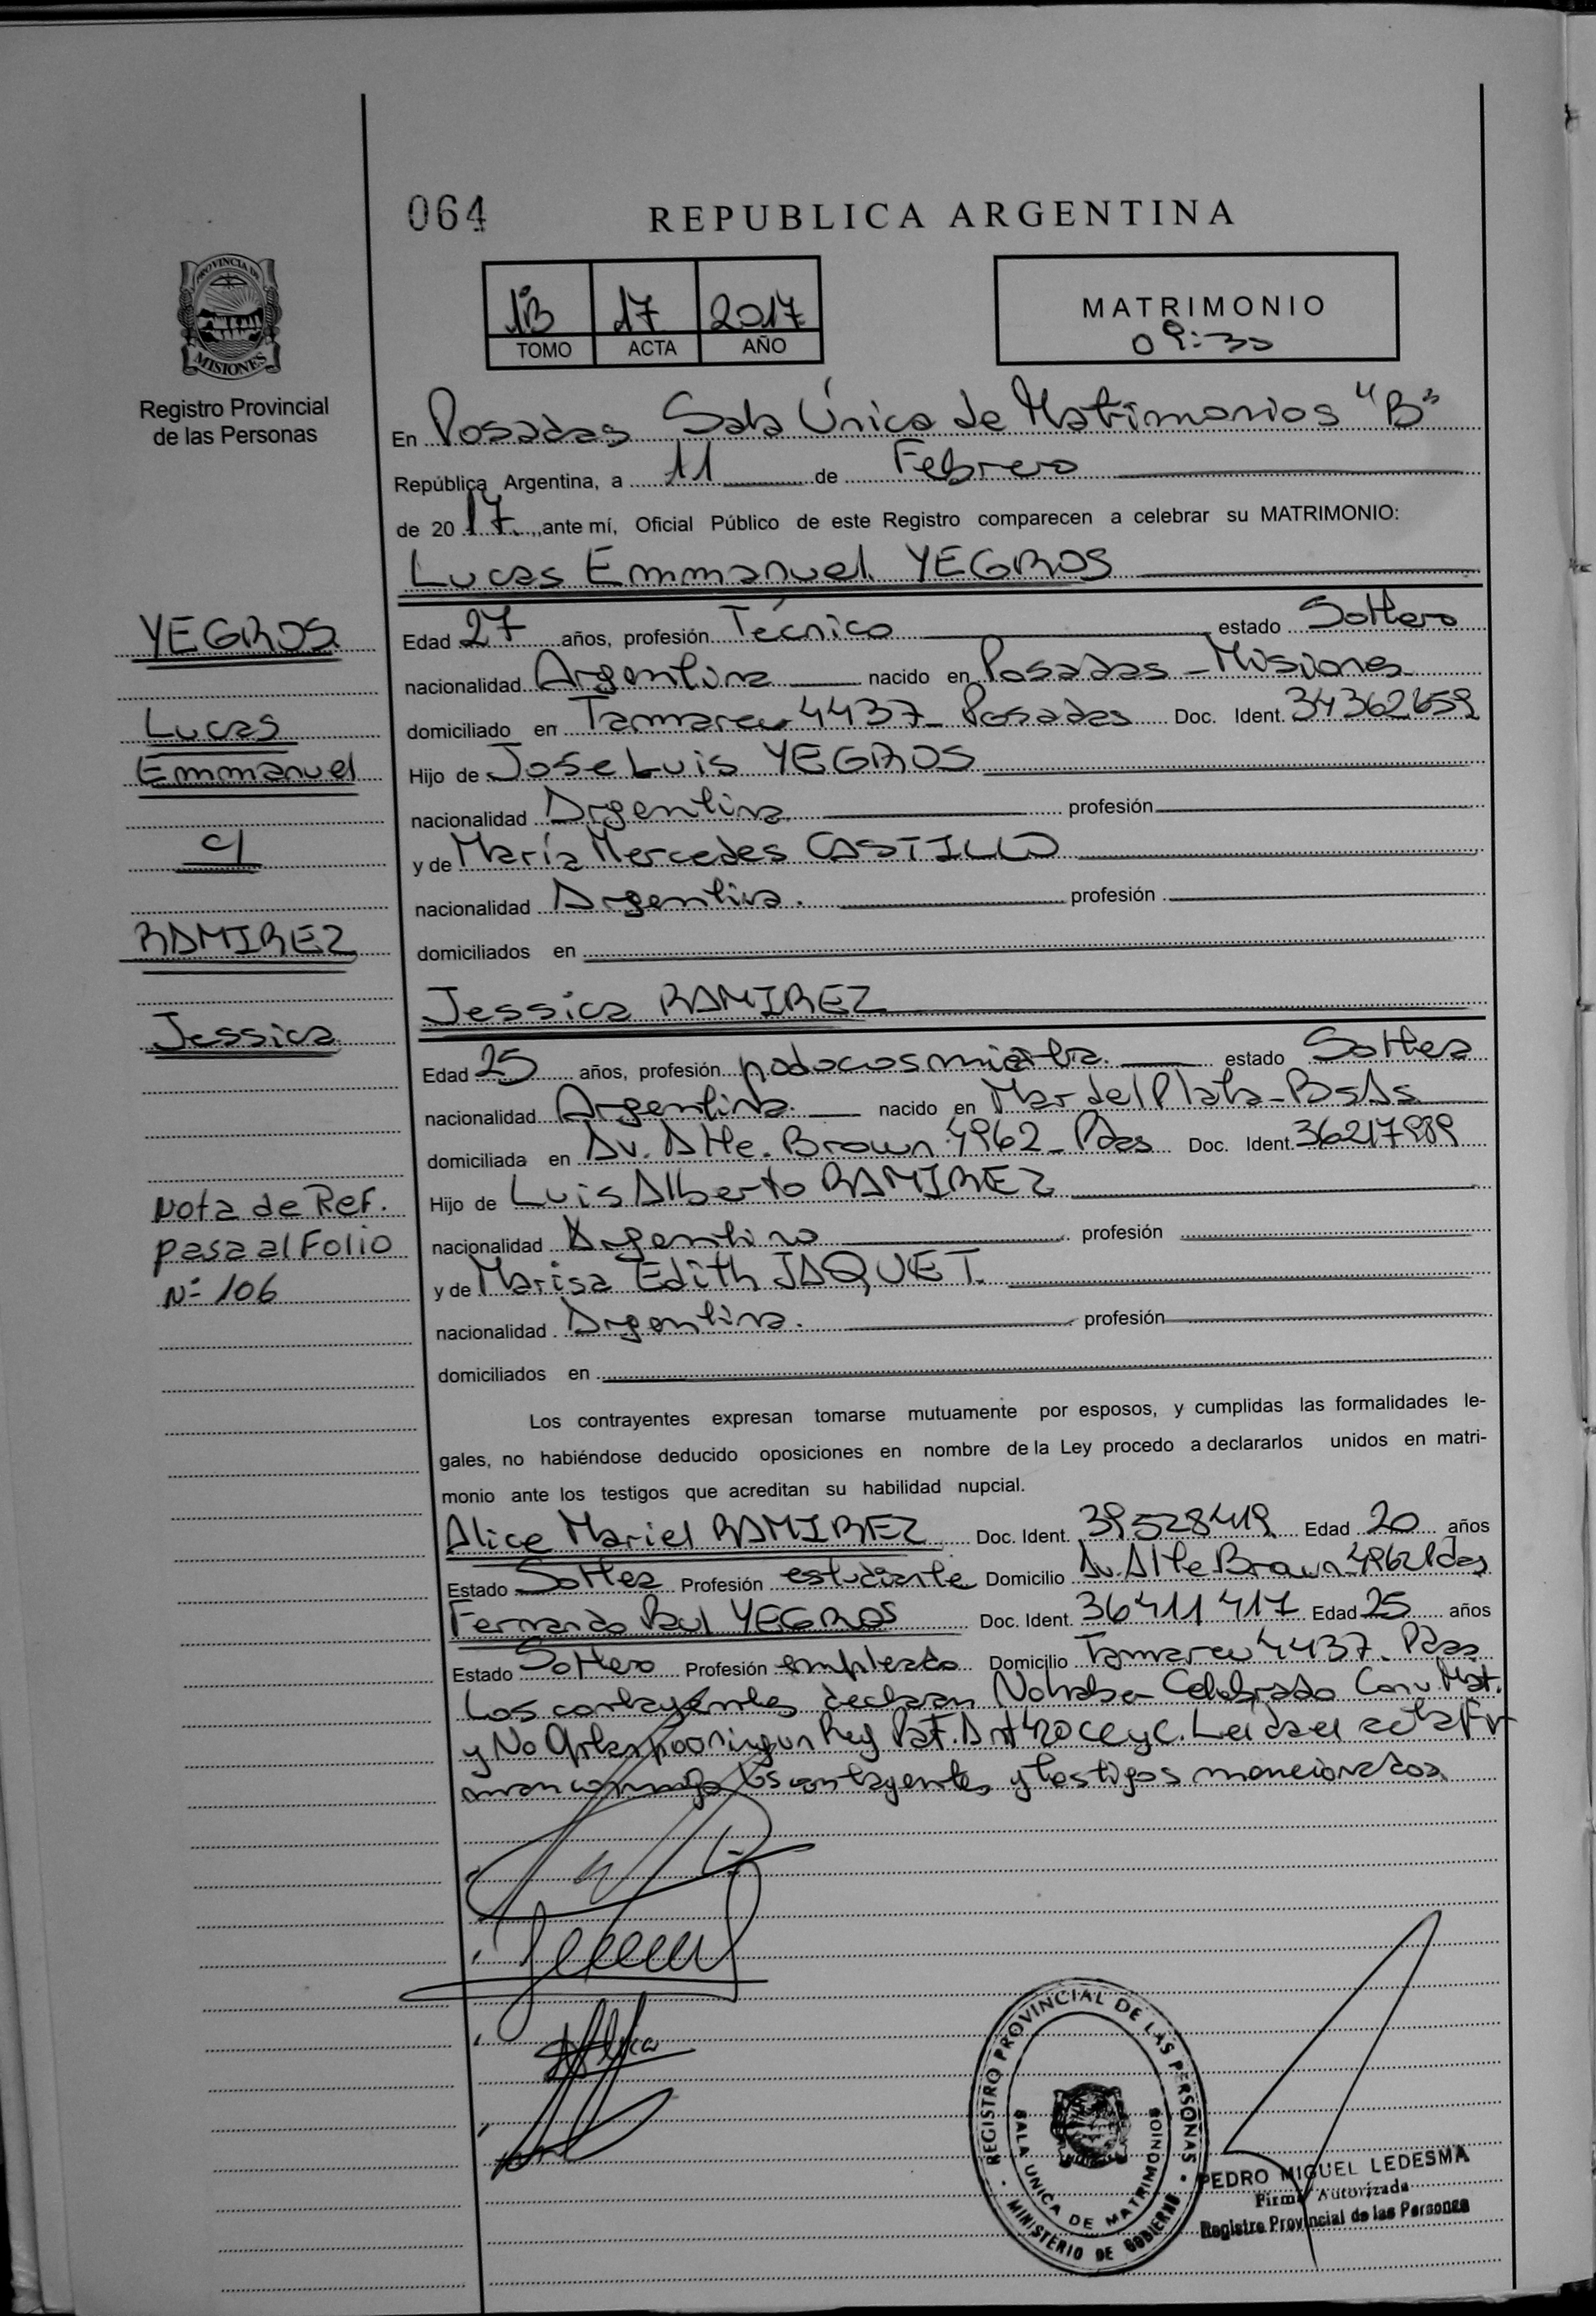 064
REPUBLICA ARGENTINA
PROVINCIA DE
MISIONES
Registro Provincial
de las Personas
1B 17 2017
TOMO ACTA AÑO
MATRIMONIO
09:30
En Posadas Sala Única de Matrimonios "B"
República Argentina, a 11 de Febrero
de 2017, ante mí, Oficial Público de este Registro comparecen a celebrar su MATRIMONIO:
Lucas Emmanuel YEGROS
YEGROS
Lucas
Emmanuel
c/
RAMIREZ
Jessica
Edad 27 años, profesión Técnico estado Soltero
nacionalidad Argentina nacido en Posadas - Misiones
domiciliado en Tamareu 4437 - Posadas Doc. Ident. 34362659
Hijo de Jose Luis YEGROS
nacionalidad Argentina profesión
y de María Mercedes CASTILLO
nacionalidad Argentina. profesión
domiciliados en
Jessica RAMIREZ
Edad 25 años, profesión estado Soltera
nacionalidad Argentina. nacido en Mar del Plata - BsAs
domiciliada en Av. Alte. Brown 4962 - Pdas Doc. Ident. 36217989
Hijo de Luis Alberto RAMIREZ
nacionalidad Argentino profesión
y de Marisa Edith JAQUET.
nacionalidad Argentina. profesión
domiciliados en
Nota de Ref.
pasa al Folio
Nº 106
Los contrayentes expresan tomarse mutuamente por esposos, y cumplidas las formalidades le-
gales, no habiéndose deducido oposiciones en nombre de la Ley procedo a declararlos unidos en matri-
monio ante los testigos que acreditan su habilidad nupcial.
Alice Mariel RAMIREZ Doc. Ident. 39528419 Edad 20 años
Estado Soltera Profesión estudiante Domicilio Av. Alte Brown 4962 Pdas
Fernando Paul YEGROS Doc. Ident. 36411417 Edad 25 años
Estado Soltero Profesión empleado Domicilio Tamareu 4437. Pdas
Los contrayentes declaran No haber Celebrado Conv. Mat.
y No Optan por ningun Reg Pat. Art 420 CCyC. Leida el acta Fir
man conmigo los contrayentes y testigos mencionados.
Alice
REGISTRO PROVINCIAL DE LAS PERSONAS
SALA UNICA DE MATRIMONIOS
MINISTERIO DE GOBIERNO
PEDRO MIGUEL LEDESMA
Firma Autorizada
Registro Provincial de las Personas